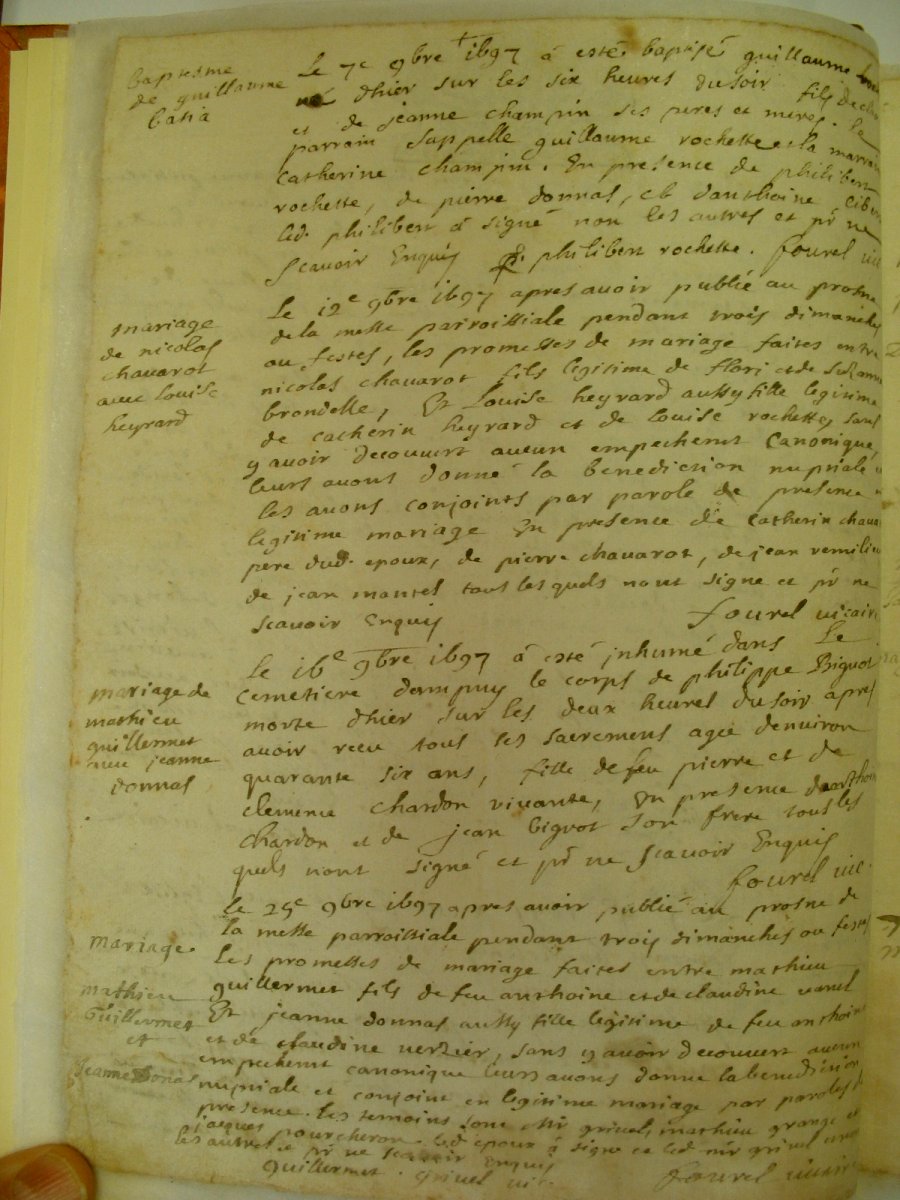 baptesme
de guillaume
basia
Le 7e 9bre 1697 à esté baptisé guillaume
né dhier sur les six heures du soir fils de
et de jeanne champin ses peres et meres. le
parrain sappelle guillaume rochette et la marrai
catherine champin. En presence de philibert
rochette, de pierre donnas, et danthoine
led. philibert à signé non les autres et pr ne
scavoir Enquis philibert rochette. fourel vic
mariage
de nicolas
chavarot
avec louise
heyrard
Le 12e 9bre 1697 apres avoir publié au prosne
de la messe parroissiale pendant trois dimanches
ou festes, les promesses de mariage faites entre
nicolas chavarot fils legitime de flori et de suzanne
brondelle, Et Louise heyrard aussy fille legitime
de catherin heyrard et de louise rochette, sans
y avoir decouvert aucun empechemt canonique,
leurs avons donné la benediction nuptiale
les avons conjoints par parole de presence
legitime mariage En presence de catherin chava
pere dud. epoux, de pierre chavarot, de jean remilieu
de jean mantel tous lesquels nont signe et pr ne
scavoir Enquis fourel vicaire
mariage de
mathieu
guillermet
avec jeanne
donnas
Le 16e 9bre 1697 à esté jnhumé dans Le
cemetiere dampuy le corps de philippe Biguot
morte dhier sur les deux heures du soir apres
avoir receu tous ses sacremens agée denviron
quarante six ans, fille de feu pierre et de
clemence chardon vivante, En presence danthoi
chardon et de jean biguot son frere tous les
quels nont signé et pr ne scavoir Enquis
fourel vic.
mariage
mathieu
Guillermet
et
Jeanne Donas
Le 25e 9bre 1697 apres avoir publié au prosne de
la messe parroissiale pendant trois dimanches ou festes
les promesses de mariage faites entre mathieu
guillermet fils de feu anthoine et de claudine vanel
Et jeanne donnas aussy fille legitime de feu anthoine
et de claudine verzier, sans y avoir decouvert aucun
empechemt canonique leurs avons donne la benediction
nuptiale et conjoint en legitime mariage par paroles de
presence. les temoins sont Mr grivel, mathieu grange et
jacques pourcheron. led. epoux à signe et led. mr grivel
les autres et pr ne scavoir Enquis
guillermet. grivel vic. fourel vicaire